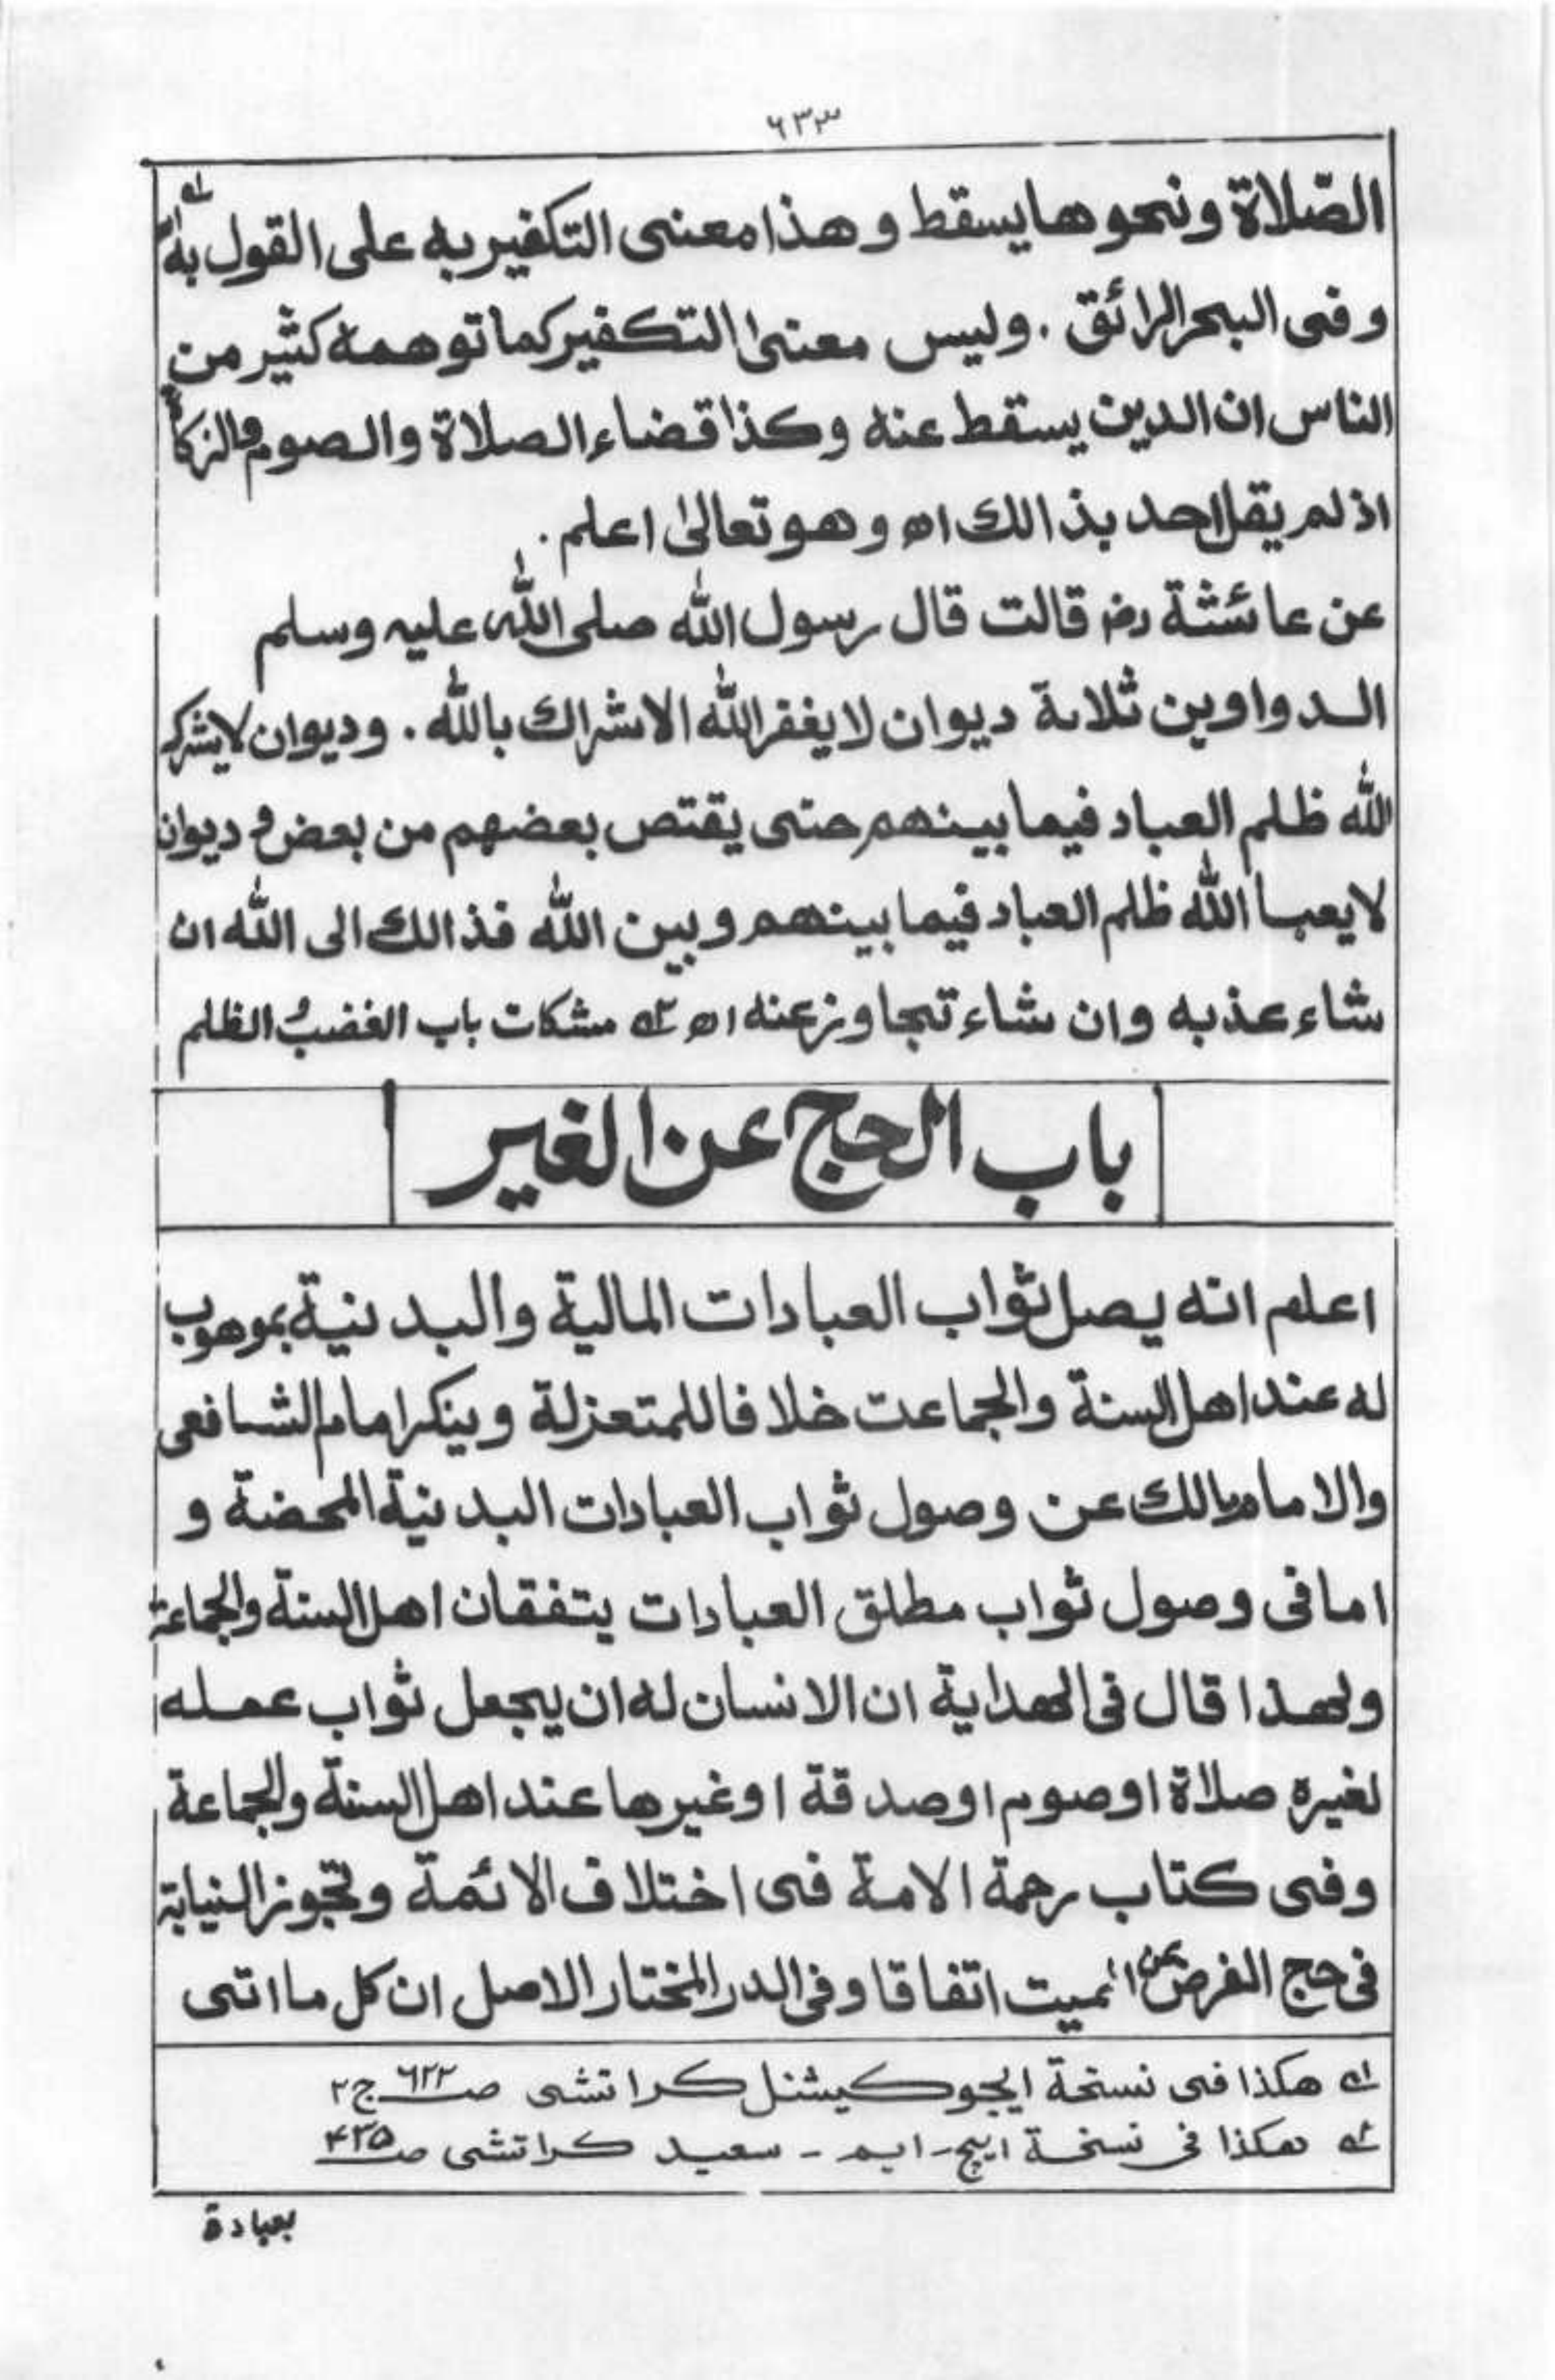 ۶۳۳
الصّلاة ونحوها يسقط وهذا معنى التكفير به على القول به اه ؎۱
وفى البحر الرائق . وليس معنى التكفير كما توهمه كثير من
الناس ان الدين يسقط عنه وكذا قضاء الصلاة والصوم والزكاة
اذ لم يقل احد بذالك اه وهو تعالىٰ اعلم .
عن عائشة رضـ قالت قال رسول الله صلى الله عليه وسلم
الدواوين ثلاثة ديوان لا يغفر الله الاشراك بالله . وديوان لا يشركه
الله ظلم العباد فيما بينهم حتى يقتص بعضهم من بعض و ديوان
لا يعبا الله ظلم العباد فيما بينهم وبين الله فذالك الى الله ان
شاء عذبه وان شاء تجاوز عنه اه ؎۲ مشكات باب الغضب والظلم
باب الحج عن الغير
اعلم انه يصل ثواب العبادات المالية والبدنية بموهوب
له عند اهل السنة والجماعت خلافا للمتعزلة وينكر امام الشافعى
والامام مالك عن وصول ثواب العبادات البدنية المحضة و
اما فى وصول ثواب مطلق العبادات يتفقان اهل السنة والجماعة
ولهذا قال فى الهداية ان الانسان له ان يجعل ثواب عمله
لغيره صلاة او صوم او صدقة او غيرها عند اهل السنة والجماعة
وفى كتاب رحمة الامة فى اختلاف الائمة وتجوز النيابة
فى حج الفرض عن الميت اتفاقا وفى الدر المختار الاصل ان كل ما اتى
؎۱ هكذا فى نسخة ايجوكيشنل كراتشى صـ ۶۲۲ ج۲
؎۲ هكذا فى نسخة ايچ - ايم - سعيد كراتشى صـ ۴۳۵
بعبادة